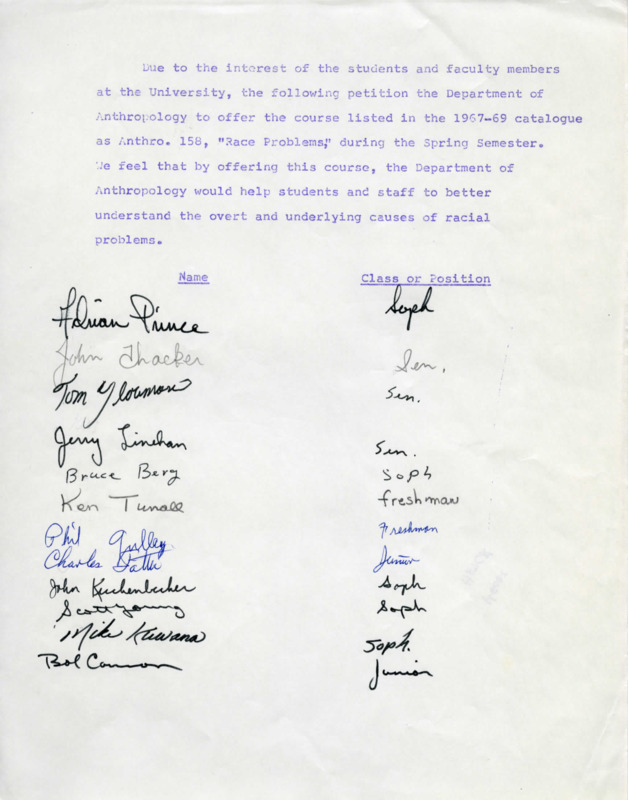 Due to the interest of the students and faculty members
at the University, the following petition the Department of
Anthropology to offer the course listed in the 1967-69 catalogue
as Anthro. 158, "Race Problems," during the Spring Semester.
We feel that by offering this course, the Department of
Anthropology would help students and staff to better
understand the overt and underlying causes of racial
problems.
Name Class or Position
Adrian Prince Soph
John Thacker Sen.
Tom Sen.
Jerry Linehan Sen.
Bruce Berg Soph
Ken freshman
Phil Gulley Freshman
Charles Junior
John Kuchenbecker Soph
Scott Young Soph
Mike Kuwana Soph.
Bob Cannon Junior